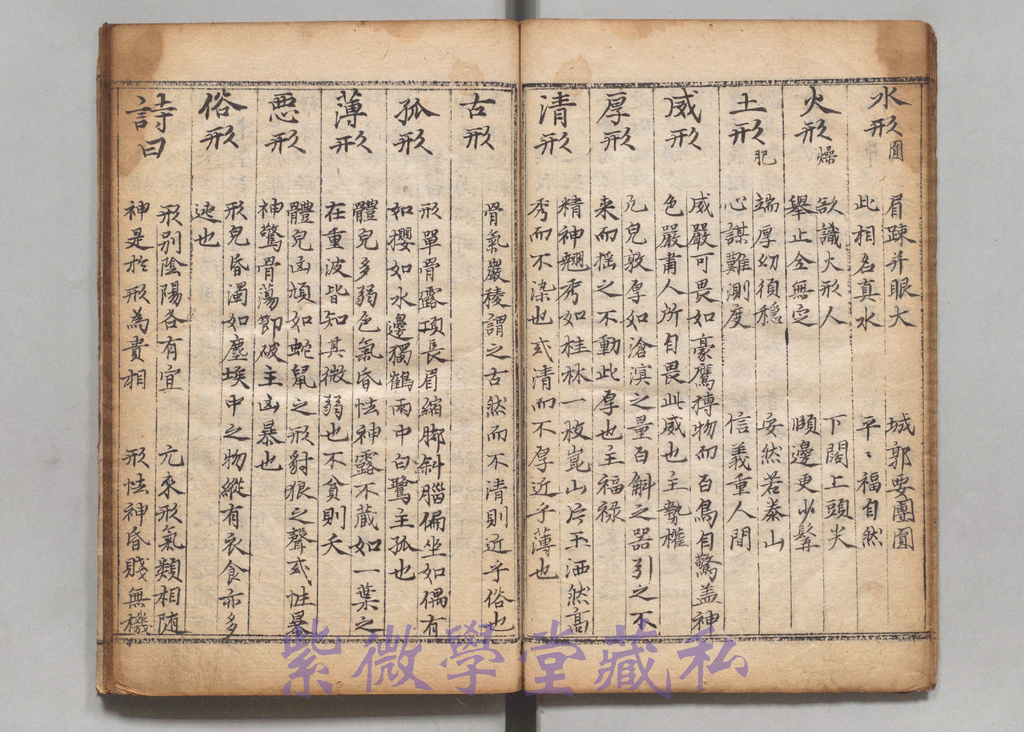 水形 圓
眉疎并眼大 城郭要團圓
此相名真水 平〻福自然
火形 燥
欲識火形人 下闊上頭尖
舉止全無定 頤邊更少髯
土形 肥
端厚幼須穩 安然若泰山
心謀難測度 信義重人間
威形
威嚴可畏如豪鷹搏物而百鳥自驚盖神
色嚴肅人所自畏此威也主勢權
厚形
凢皃敦厚如滄溟之量百斛之器引之不
来而搖之不動此厚也主福祿
清形
精神翹秀如桂林一枝崑山片玉洒然高
秀而不染也或清而不厚近乎薄也
古形
骨氣巖稜謂之古然而不清則近乎俗也
孤形
形單骨露項長眉縮脚斜腦偏坐如偶有
如攖如水邊獨鶴雨中白鷺主孤也
薄形
體皃多弱色氣昏怯神露不藏如一葉之
在重波皆知其微弱也不貧則夭
悪形
體皃凶頑如蛇鼠之形豺狼之聲或性暴
神驚骨蕩節破主凶暴也
俗形
形皃昏濁如塵埃中之物縱有衣食亦多
迍也
詩曰
形别陰陽各有宜 元來形氣類相随
神是於形為貴相 形怯神昏賤無機
紫微學堂藏私